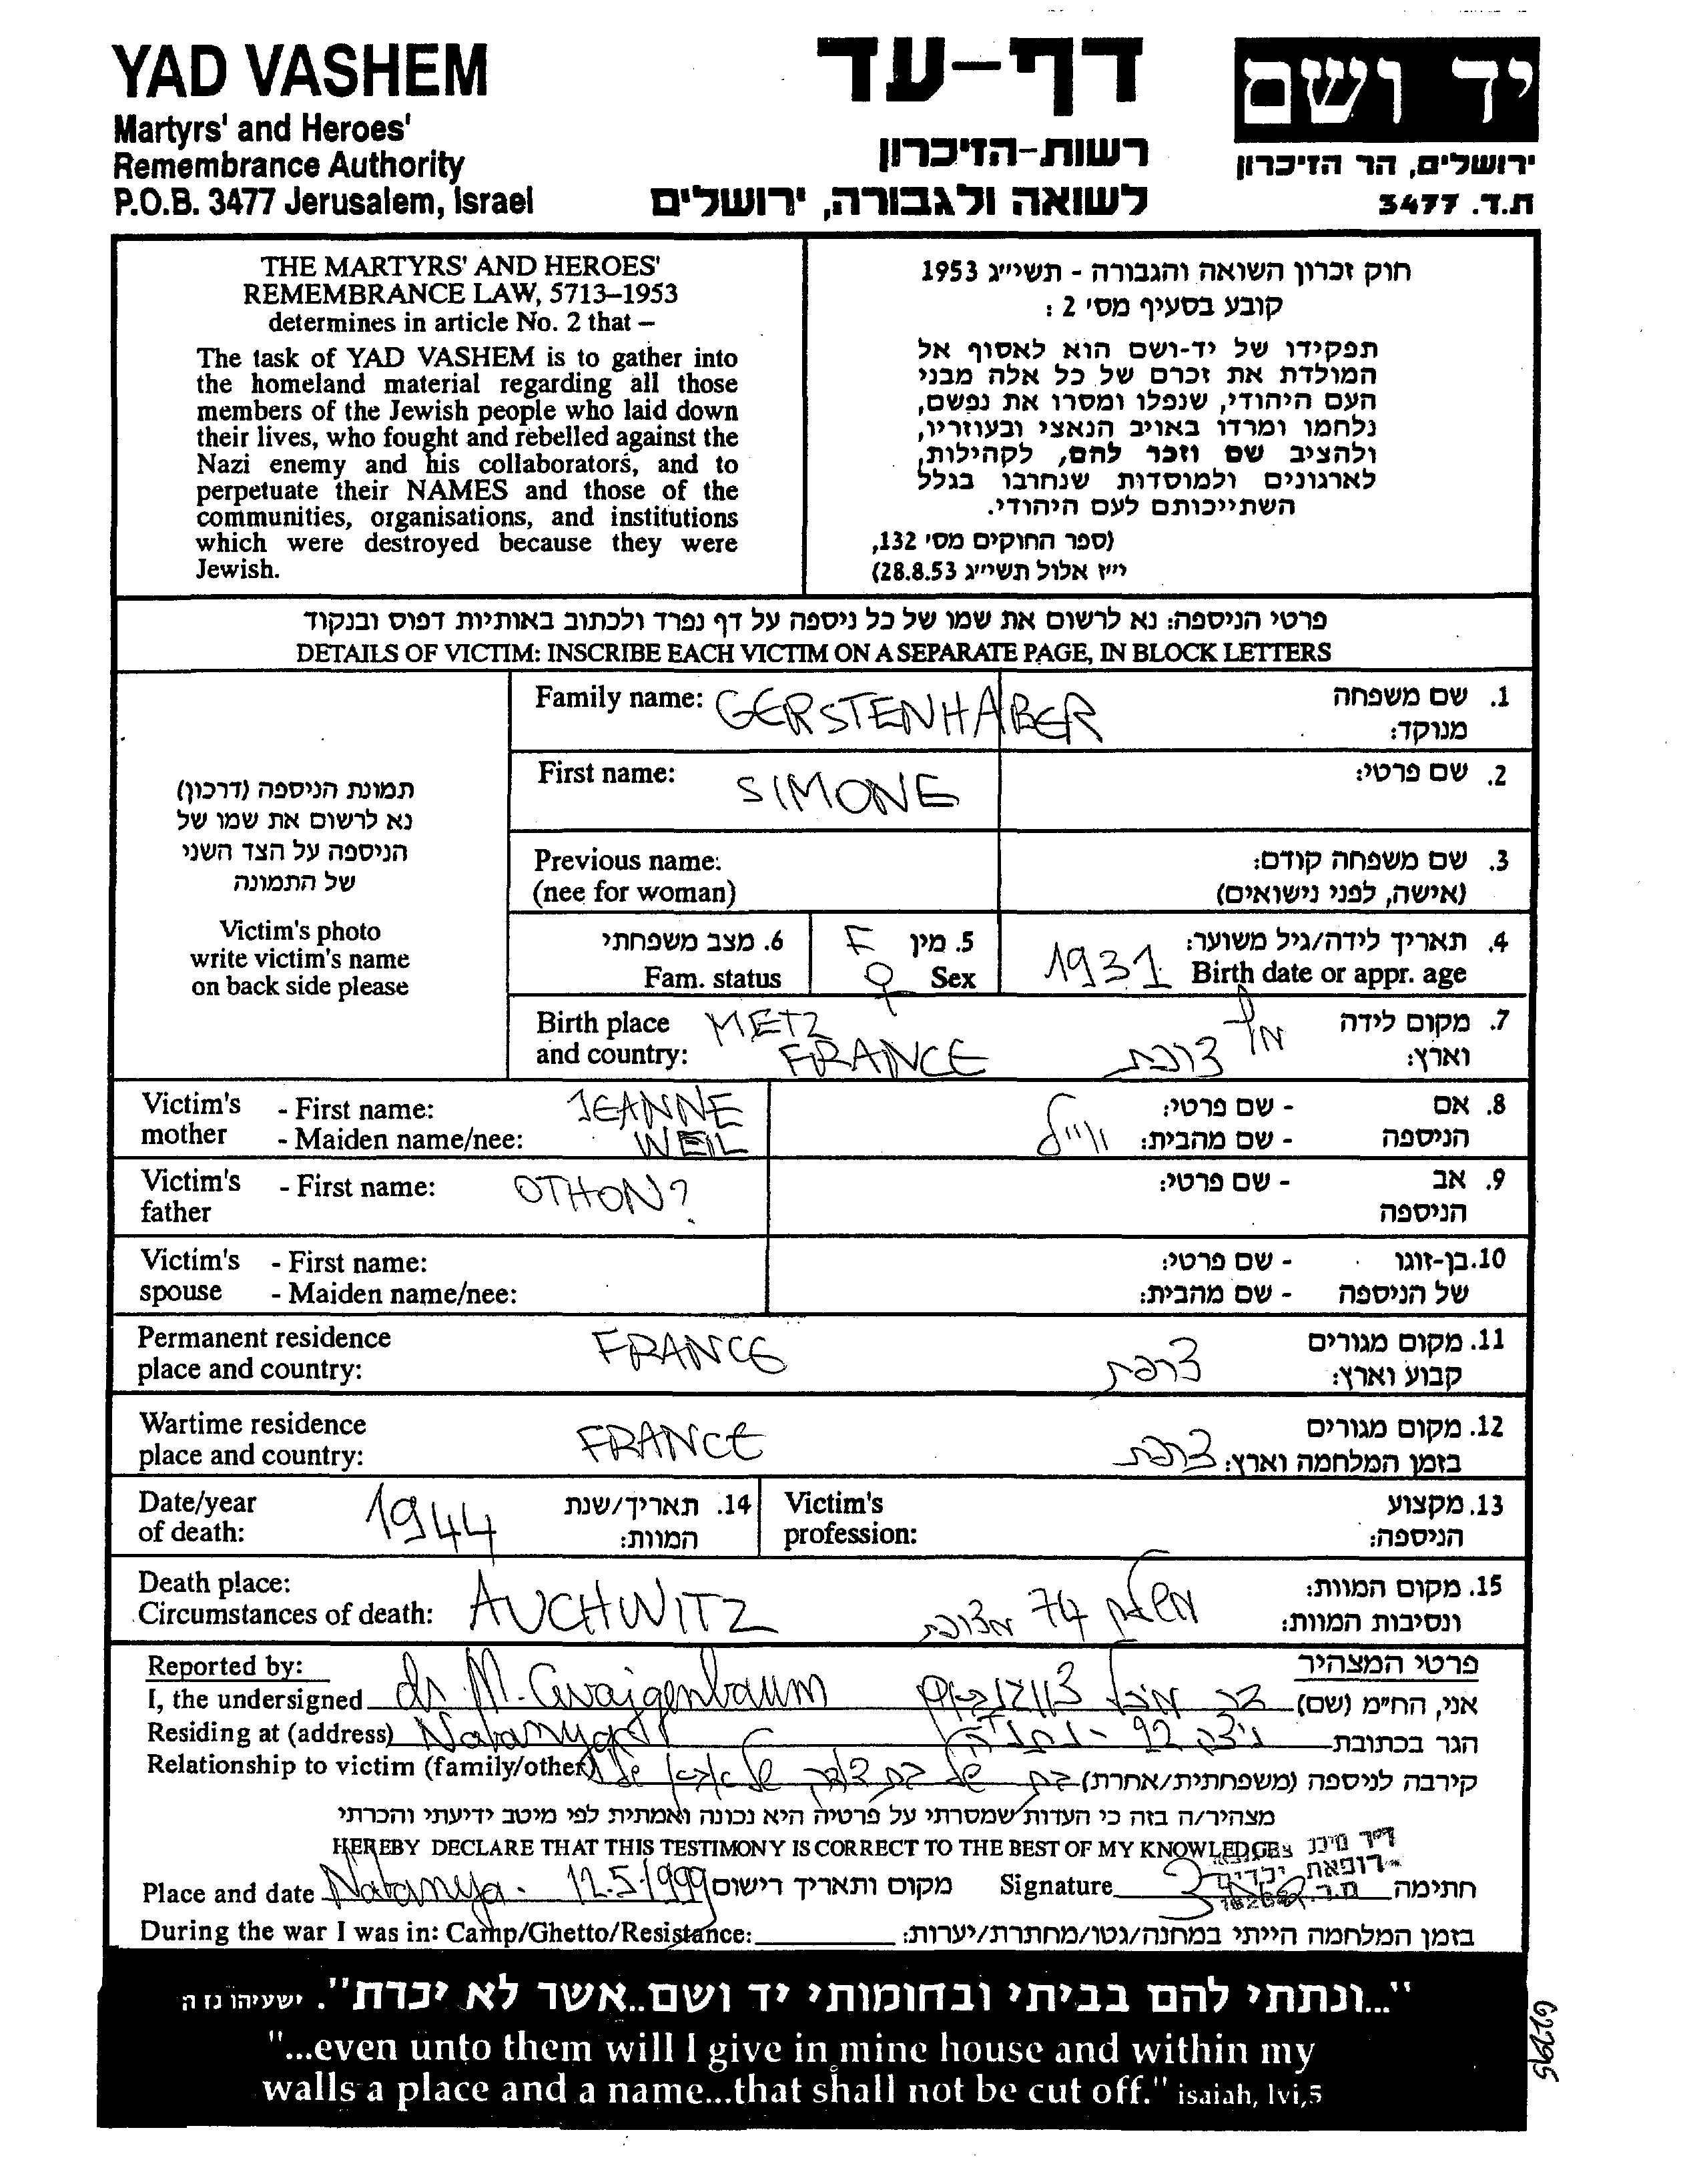 YAD VASHEM
Martyrs' and Heroes'
Remembrance Authority
P.O.B. 3477 Jerusalem, Israel
דף-עד
רשות-הזיכרון
לשואה ולגבורה, ירושלים
יד ושם
ירושלים, הר הזיכרון
ת.ד. 3477
THE MARTYRS' AND HEROES'
REMEMBRANCE LAW, 5713–1953
determines in article No. 2 that –
The task of YAD VASHEM is to gather into
the homeland material regarding all those
members of the Jewish people who laid down
their lives, who fought and rebelled against the
Nazi enemy and his collaborators, and to
perpetuate their NAMES and those of the
communities, organisations, and institutions
which were destroyed because they were
Jewish.
חוק זכרון השואה והגבורה - תשי״ג 1953
קובע בסעיף מס׳ 2 :
תפקידו של יד-ושם הוא לאסוף אל
המולדת את זכרם של כל אלה מבני
העם היהודי, שנפלו ומסרו את נפשם,
נלחמו ומרדו באויב הנאצי ובעוזריו,
ולהציב שם וזכר להם, לקהילות,
לארגונים ולמוסדות שנחרבו בגלל
השתייכותם לעם היהודי.
(ספר החוקים מס׳ 132,
י״ז אלול תשי״ג 28.8.53)
פרטי הניספה: נא לרשום את שמו של כל ניספה על דף נפרד ולכתוב באותיות דפוס ובנקוד
DETAILS OF VICTIM: INSCRIBE EACH VICTIM ON A SEPARATE PAGE, IN BLOCK LETTERS
תמונת הניספה (דרכון)
נא לרשום את שמו של
הניספה על הצד השני
של התמונה
Victim's photo
write victim's name
on back side please
Family name: GERSTENHABER 1. שם משפחה
מנוקד:
First name: SIMONE 2. שם פרטי:
Previous name: 3. שם משפחה קודם:
(nee for woman) (אישה, לפני נישואים)
6. מצב משפחתי F 5. מין 4. תאריך לידה/גיל משוער:
Fam. status ♀ Sex 1931 Birth date or appr. age
Birth place METZ 7. מקום לידה
and country: FRANCE צרפת וארץ:
Victim's - First name: JEANNE - שם פרטי: 8. אם
mother - Maiden name/nee: WEIL וייל - שם מהבית: הניספה
Victim's - First name: OTHON? - שם פרטי: 9. אב
father הניספה
Victim's - First name: - שם פרטי: 10.בן-זוגו
spouse - Maiden name/nee: - שם מהבית: של הניספה
Permanent residence FRANCE צרפת 11. מקום מגורים
place and country: קבוע וארץ:
Wartime residence FRANCE צרפת 12. מקום מגורים
place and country: בזמן המלחמה וארץ:
Date/year 1944 14. תאריך/שנת Victim's 13. מקצוע
of death: המוות: profession: הניספה:
Death place: 15. מקום המוות:
Circumstances of death: AUCHWITZ משלוח 74 מצרפת ונסיבות המוות:
Reported by: פרטי המצהיר
I, the undersigned dr M. Gvajgenbaum אני, הח״מ (שם)
Residing at (address) Natanya נתניה הגר בכתובת
Relationship to victim (family/other) קירבה לניספה (משפחתית/אחרת)
מצהיר/ה בזה כי העדות שמסרתי על פרטיה היא נכונה ואמתית לפי מיטב ידיעתי והכרתי
HEREBY DECLARE THAT THIS TESTIMONY IS CORRECT TO THE BEST OF MY KNOWLEDGE
Place and date Natanya. 12.5.1999 מקום ותאריך רישום Signature חתימה
During the war I was in: Camp/Ghetto/Resistance: בזמן המלחמה הייתי במחנה/גטו/מחתרת/יערות:
"...ונתתי להם בביתי ובחומותי יד ושם..אשר לא יכרת". ישעיהו נו ה
"...even unto them will I give in mine house and within my
walls a place and a name...that shall not be cut off." isaiah, lvi,5